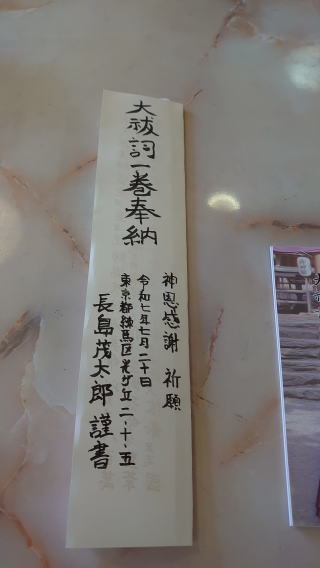 大祓詞一巻奉納
神恩感謝 祈願
令和七年七月二十日
東京都練馬区光が丘二、十、五
長島茂太郎 謹書